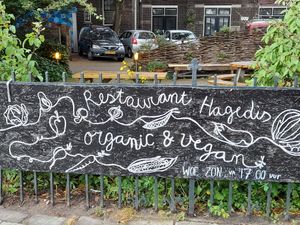 Restaurant Hagedis
organic & vegan
WOE ZON v.a. 17.00 uur